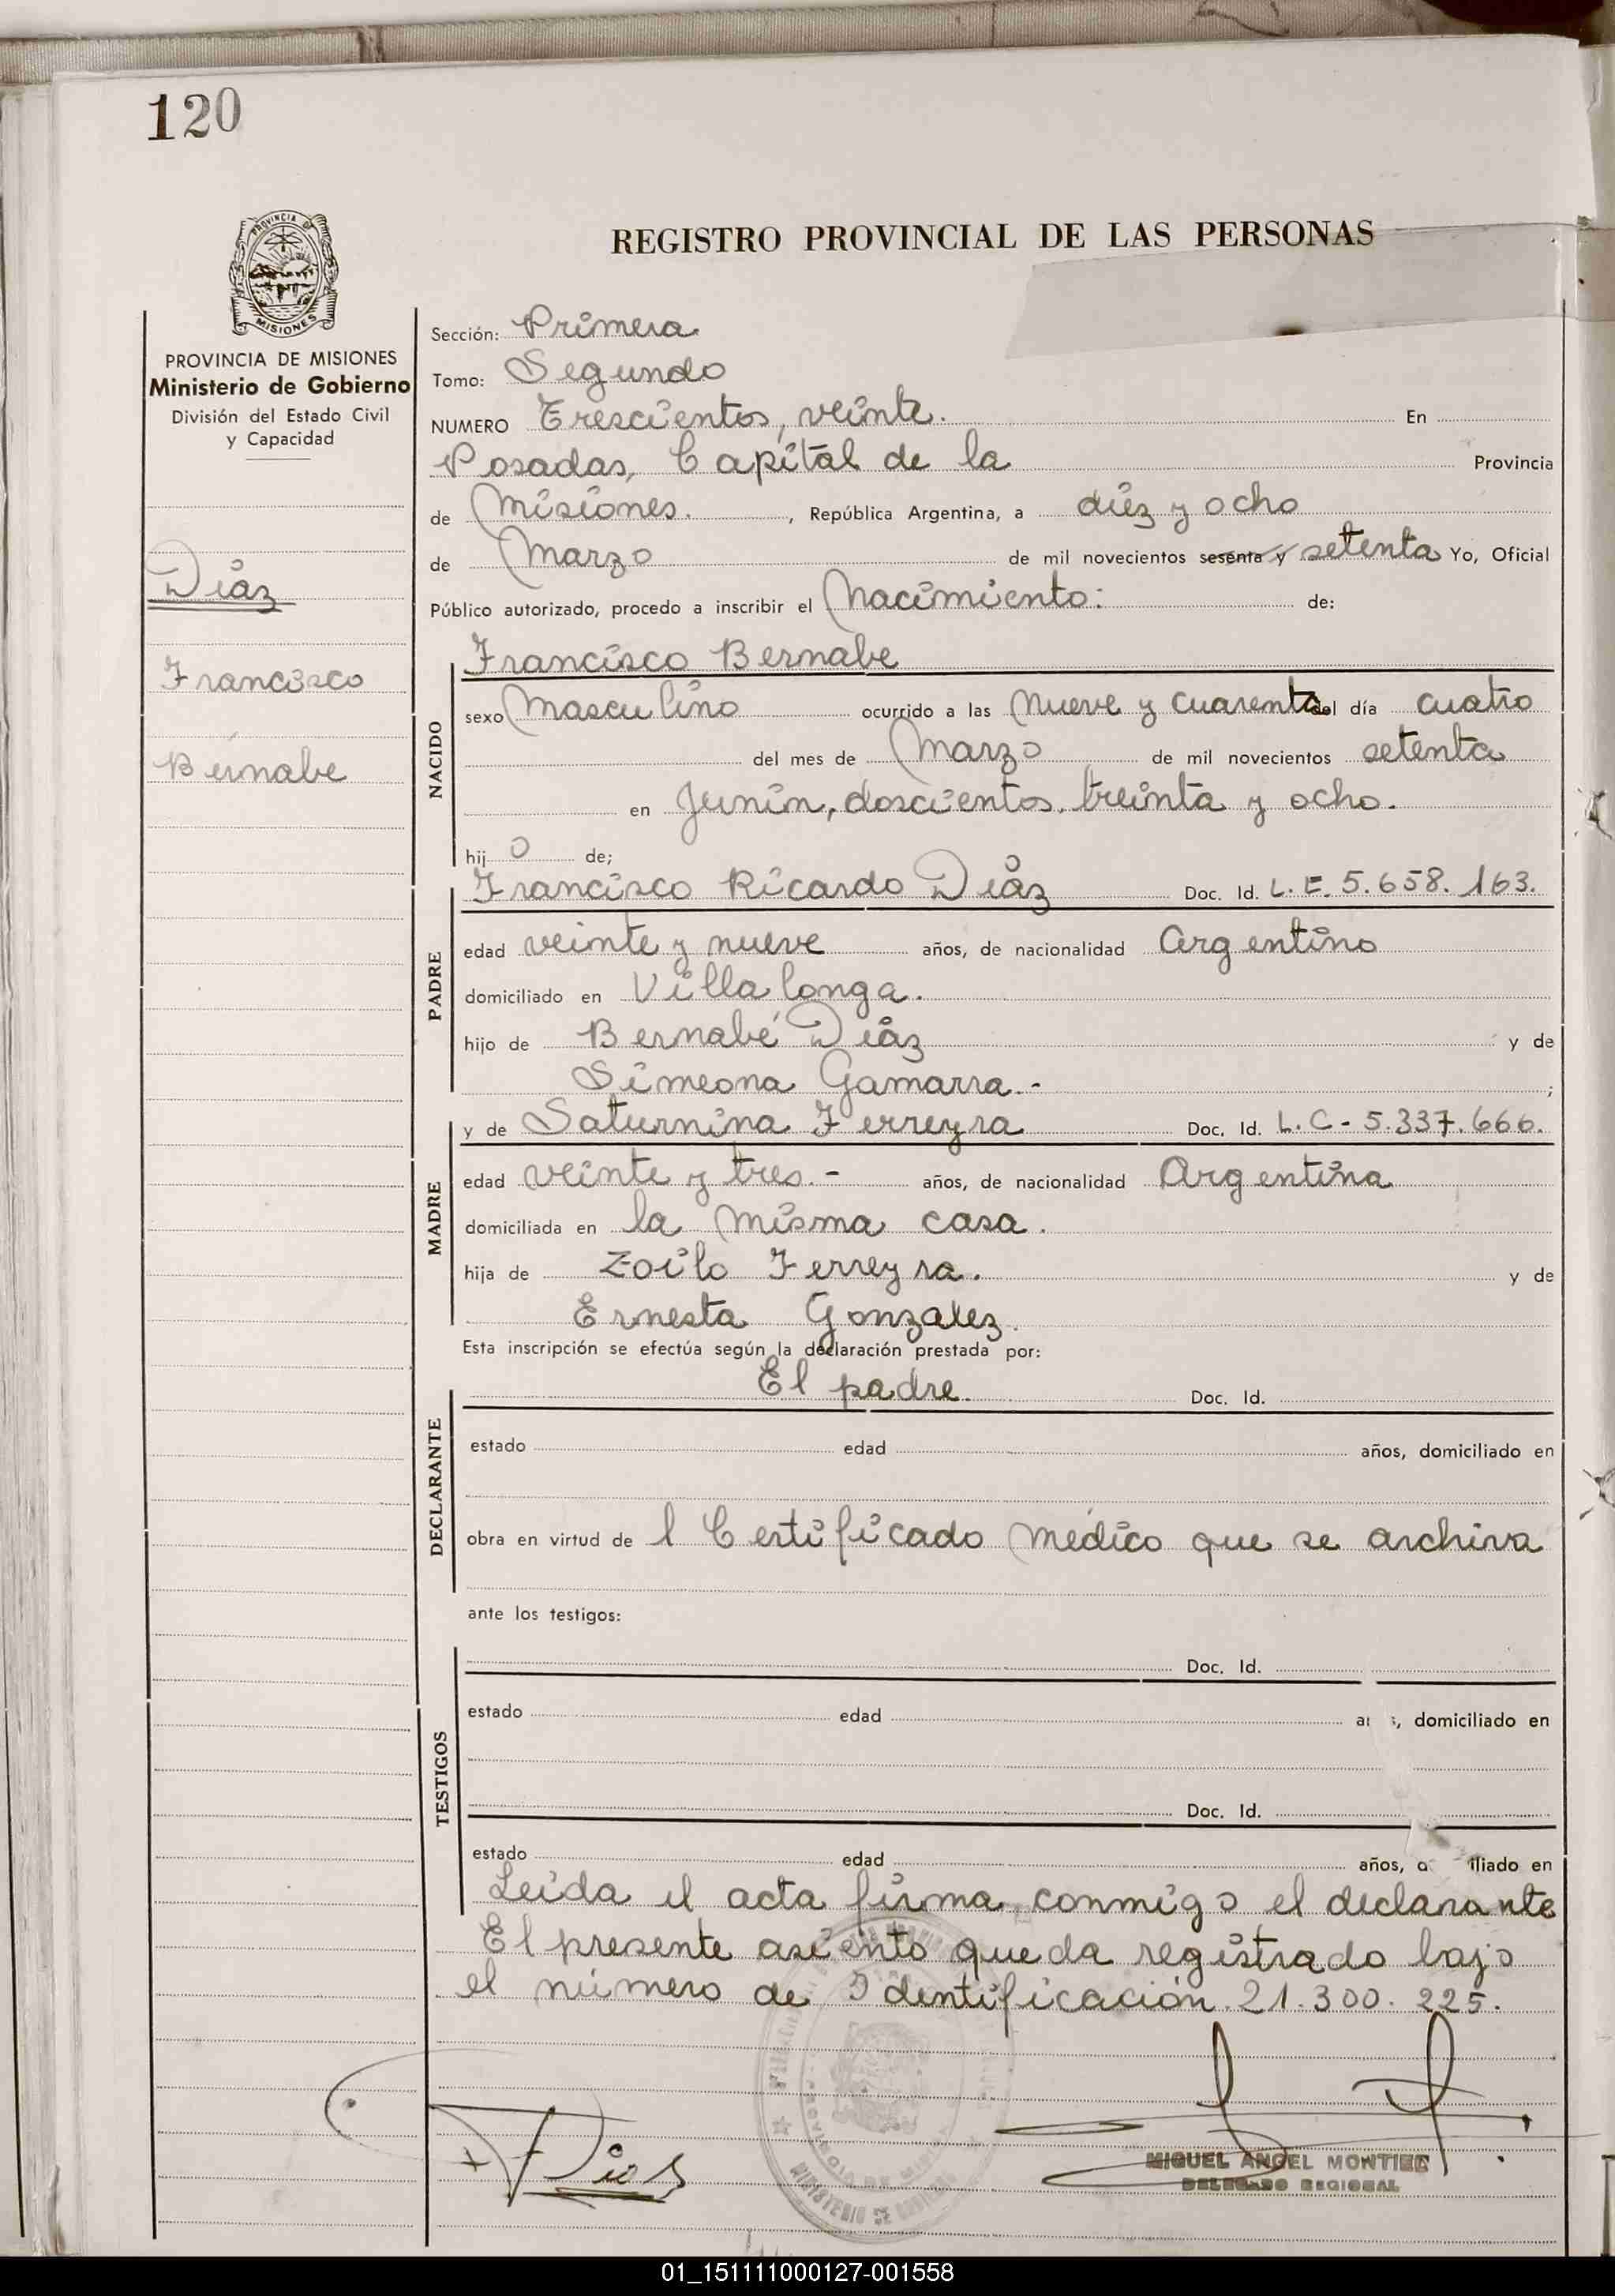 120
PROVINCIA DE
MISIONES
REGISTRO PROVINCIAL DE LAS PERSONAS
PROVINCIA DE MISIONES
Ministerio de Gobierno
División del Estado Civil
y Capacidad
Díaz
Francisco
Bernabe
Sección: Primera
Tomo: Segundo
NUMERO Trescientos, veinte. En
Posadas, Capital de la Provincia
de Misiones. , República Argentina, a diez y ocho
de Marzo de mil novecientos sesenta y setenta Yo, Oficial
Público autorizado, procedo a inscribir el Nacimiento: de:
NACIDO
Francisco Bernabe
sexo Masculino ocurrido a las Nueve y Cuarenta del día cuatro
del mes de Marzo de mil novecientos setenta
en Junín, doscientos, treinta y ocho.
hij o de;
PADRE
Francisco Ricardo Díaz Doc. Id. L. E. 5.658.163.
edad veinte y nueve años, de nacionalidad Argentino
domiciliado en Villa longa.
hijo de Bernabé Díaz y de
Simeona Gamarra.- ;
MADRE
y de Saturnina Ferreyra Doc. Id. L.C- 5.337.666.
edad veinte y tres.- años, de nacionalidad Argentina
domiciliada en la misma casa.
hija de Zoilo Ferreyra. y de
Ernesta Gonzalez.
Esta inscripción se efectúa según la declaración prestada por:
DECLARANTE
El padre. Doc. Id.
estado edad años, domiciliado en
obra en virtud de l Certificado Médico que se archiva
ante los testigos:
TESTIGOS
Doc. Id.
estado edad domiciliado en
Doc. Id.
estado edad años, iliado en
Leída el acta firma conmigo el declarante
El presente asiento queda registrado bajo
el número de Identificación. 21.300.225.
MIGUEL ANGEL MONTIEL
DELEGADO REGIONAL
01_151111000127-001558